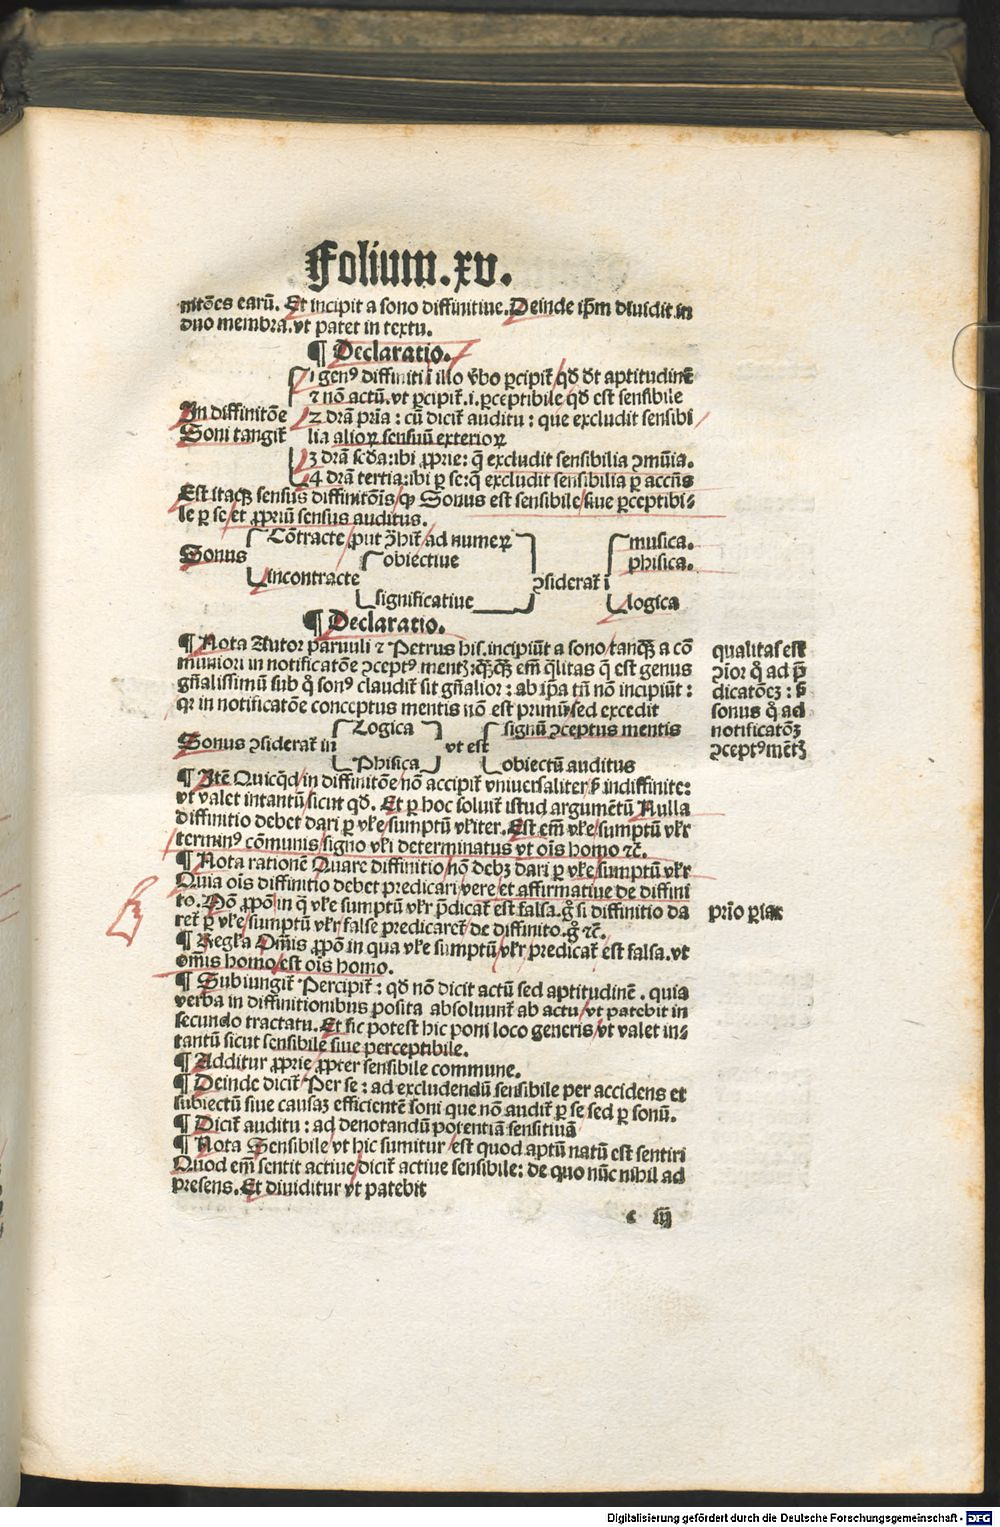 Folium.xv.
nitões earū. Et incipit a sono diffinitiue. Deinde ip̄m diuidit in
duo membra. vt patet in textu.
¶ Declaratio.
1 genꝰ diffiniti ī illo v̄bo ꝑcipit̄ qd̄ d̄t aptitudinē
⁊ nō actū. vt ꝑcipit̄ .i. ꝑceptibile qd̄ est sensibile
In diffinitōe
Soni tangit̄
2 dr̄am pr̄ia: cū dicit̄ auditu: que excludit sensibi
lia alioꝝ sensuū exterioꝝ
3 dr̄am scd̄a: ibi ꝓprie: q̄ excludit sensibilia ꝯmūia.
4 dr̄am tertia: ibi ꝑ se: q̄ excludit sensibilia ꝑ accn̄s
Est itaqꝫ sensus diffinitōis/ ꝙ Sonus est sensibile/ siue ꝑceptibi-
le ꝑ se/ et ꝓpriū sensus auditus.
Cōtracte/ put ꝓhit̄ ad numeꝝ
Sonus
obiectiue
incontracte
significatiue
ꝯsiderat̄ ī
musica.
phisica.
logica
¶ Declaratio.
¶ Nota Autor paruuli ⁊ Petrus his. incipiūt a sono/ tanqꝫ a cō
muniori in notificatōe ꝯceptꝰ mentꝫ: qꝫqꝫ em̄ q̄litas q̄ est genus
gn̄alissimū sub q̊ sonꝰ claudit̄ sit gn̄alior: ab ip̄a tn̄ nō incipiūt:
qr in notificatōe conceptus mentis nō est primū/ sed excedit
qualitas est
ꝯior q̊ ad p̄
dicatōeꝫ: s̄
sonus q̊ ad
notificatōꝫ
ꝯceptꝰ mentꝫ
Sonus ꝯsiderat̄ in
Logica
Phisica
vt est
signū ꝯceptus mentis
obiectū auditus
¶ Itē Quicqd̄/ in diffinitōe/ nō accipit̄ vniuersaliter s̄ indiffinite:
vt valet intantū/ sicut qd̄. Et ꝑ hoc soluit̄ istud argumētū Nulla
diffinitio debet dari ꝑ vl̄e/ sumptū vl̄iter. Est em̄ vl̄e/ sumptū vl̄r
terminꝰ cōmunis/ signo vl̄i determinatus vt oīs homo ⁊c̄.
¶ Nota rationē Quare diffinitio/ nō debꝫ dari ꝑ vl̄e/ sumptū vl̄r
Quia oīs diffinitio debet predicari/ vere/ et affirmatiue de diffini
to. Nō ꝓpō in q̄ vl̄e sumptū vl̄r p̄dicat̄ est falsa. g̊ si diffinitio da
ret̄ ꝑ vl̄e/ sumptū vl̄r/ false predicaret̄ de diffinito. g̊ ⁊c̄.
prīo
¶ Regl̄a Om̄is ꝓpō in qua vl̄e sumptū/ vl̄r predicat̄ est falsa. vt
om̄is homo/ est oīs homo.
¶ Subiungit̄ Percipit̄: qd̄ nō dicit actū sed aptitudinē. quia
verba in diffinitionibus posita absoluunt̄ ab actu/ vt patebit in
secundo tractatu. Et sic potest hic poni loco generis/ vt valet in-
tantū sicut sensibile siue perceptibile.
¶ Additur ꝓprie/ ꝓpter sensibile commune.
¶ Deinde dicit̄ Per se: ad excludendū sensibile per accidens et
subiectū siue causaꝫ efficientē soni que nō audit̄ ꝑ se sed ꝑ sonū.
¶ Dicit̄ auditu: ad denotandū potentiā sensitiuā
¶ Nota Sensibile/ vt hic sumitur/ est quod aptū natū est sentiri
Quod em̄ sentit actiue/ dicit̄ actiue sensibile: de quo nūc nihil ad
presens. Et diuiditur vt patebit
c iij
Digitalisierung gefördert durch die Deutsche Forschungsgemeinschaft - DFG